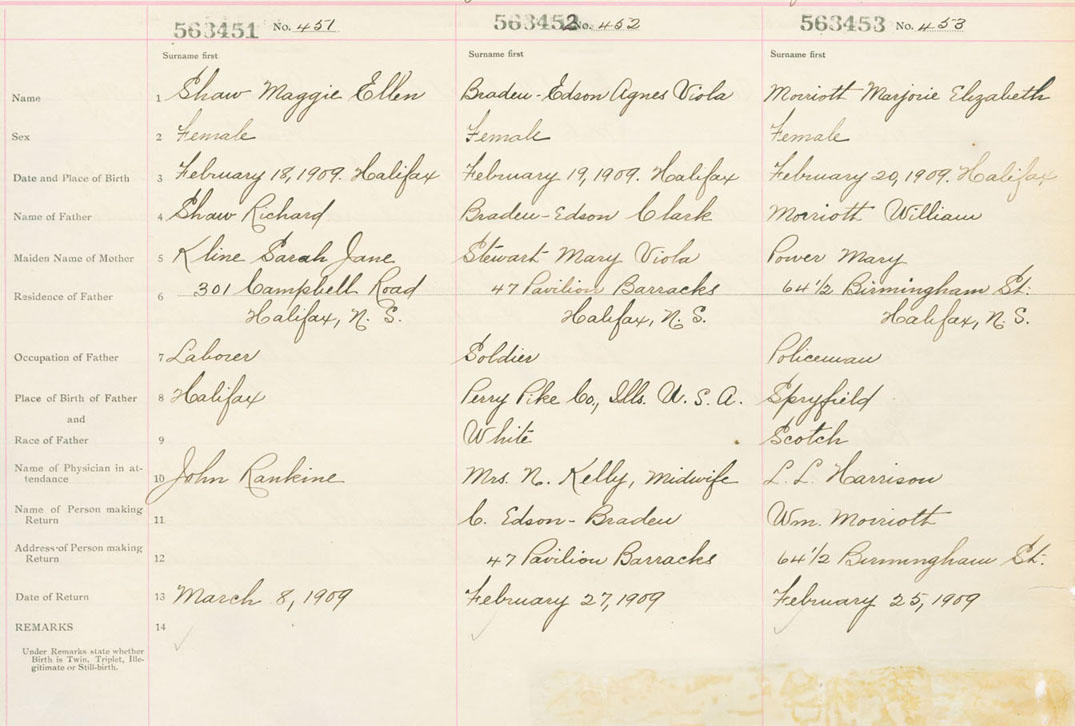 563451 No. 451 563452 No. 452 563453 No. 453
Surname first Surname first Surname first
Name 1 Shaw Maggie Ellen Braden-Edson Agnes Viola Morrioth Marjorie Elizabeth
Sex 2 Female Female Female
Date and Place of Birth 3 February 18, 1909. Halifax February 19, 1909. Halifax February 20, 1909. Halifax
Name of Father 4 Shaw Richard Braden-Edson Clark Morrioth William
Maiden Name of Mother 5 Kline Sarah Jane Stewart Mary Viola Power Mary
Residence of Father 6 301 Campbell Road 47 Pavilion Barracks 64 1/2 Birmingham St.
Halifax, N. S. Halifax, N. S. Halifax, N. S.
Occupation of Father 7 Laborer Soldier Policeman
Place of Birth of Father 8 Halifax Perry Pike Co., Ills. U. S. A. Spryfield
and
Race of Father 9 White Scotch
Name of Physician in at-
tendance 10 John Rankine Mrs. N. Kelly, Midwife L. L. Harrison
Name of Person making
Return 11 C. Edson-Braden Wm. Morrioth
Address of Person making
Return 12 47 Pavilion Barracks 64 1/2 Birmingham St.
Date of Return 13 March 8, 1909 February 27, 1909 February 25, 1909
REMARKS 14
Under Remarks state whether
Birth is Twin, Triplet, Ille-
gitimate or Still-birth.